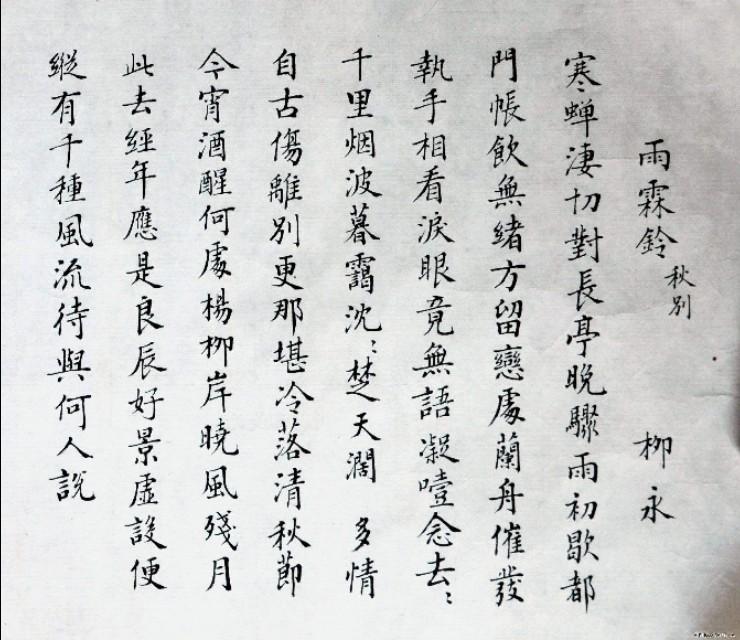 雨霖鈴 秋別 柳永
寒蝉淒切對長亭晚驟雨初歇都
門帳飲無緒方留戀處蘭舟催發
執手相看淚眼竟無語凝噎念去〻
千里烟波暮靄沈〻楚天濶 多情
自古傷離別更那堪冷落清秋節
今宵酒醒何處楊柳岸曉風殘月
此去經年應是良辰好景虛設便
縱有千種風流待與何人說